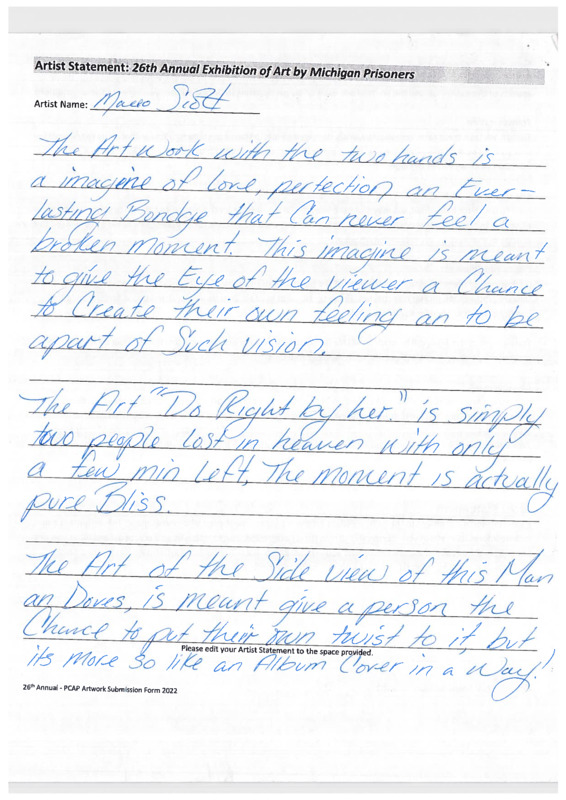 Artist Statement: 26th Annual Exhibition of Art by Michigan Prisoners
Artist Name:
The Art work with the two hands is
a imagine of love, perfection an Ever-
lasting Bondge that Can never feel a
broken moment. This imagine is meant
to give the Eye of the viewer a Chance
to Create their own feeling an to be
apart of Such vision.
The Art "Do Right by her." is simply
two people lost in heaven with only
a few min left, The moment is actually
pure Bliss.
The Art of the Side view of this Man
an Doves, is meant give a person the
Chance to put their own twist to it, but
Please edit your Artist Statement to the space provided.
its more so like an Album Cover in a Way!
26th Annual - PCAP Artwork Submission Form 2022